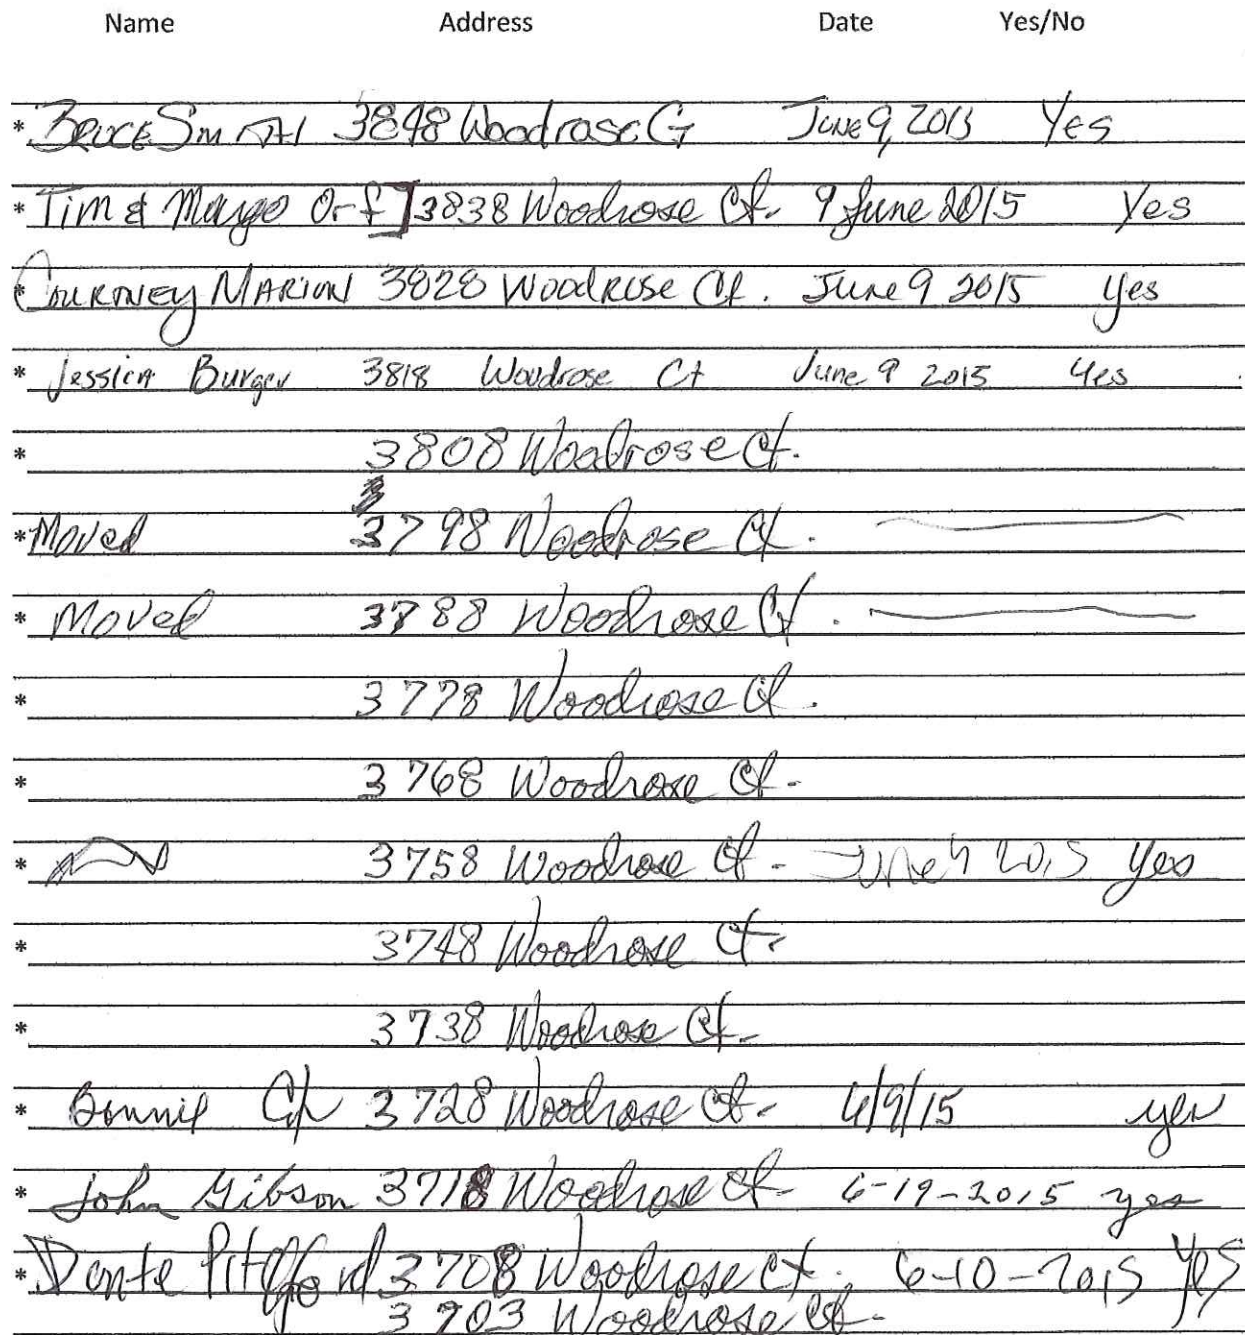 Name Address Date Yes/No
* Bruce Smith 3848 Woodrose Ct June 9, 2015 Yes
* Tim & Margo Orf 3838 Woodrose Ct. 9 June 2015 Yes
* Courtney Marion 3828 Woodrose Ct. June 9 2015 yes
* Jessica Burger 3818 Woodrose Ct June 9 2015 Yes
* 3808 Woodrose Ct.
* Moved 3798 Woodrose Ct.
* Moved 3788 Woodrose Ct.
* 3778 Woodrose Ct.
* 3768 Woodrose Ct.
* 3758 Woodrose Ct. June 9 2015 yes
* 3748 Woodrose Ct.
* 3738 Woodrose Ct.
* Bonnie 3728 Woodrose Ct. 6/9/15 yes
* John Gibson 3718 Woodrose Ct. 6-19-2015 yes
* Dante 3708 Woodrose Ct. 6-10-2015 yes
3703 Woodrose Ct.